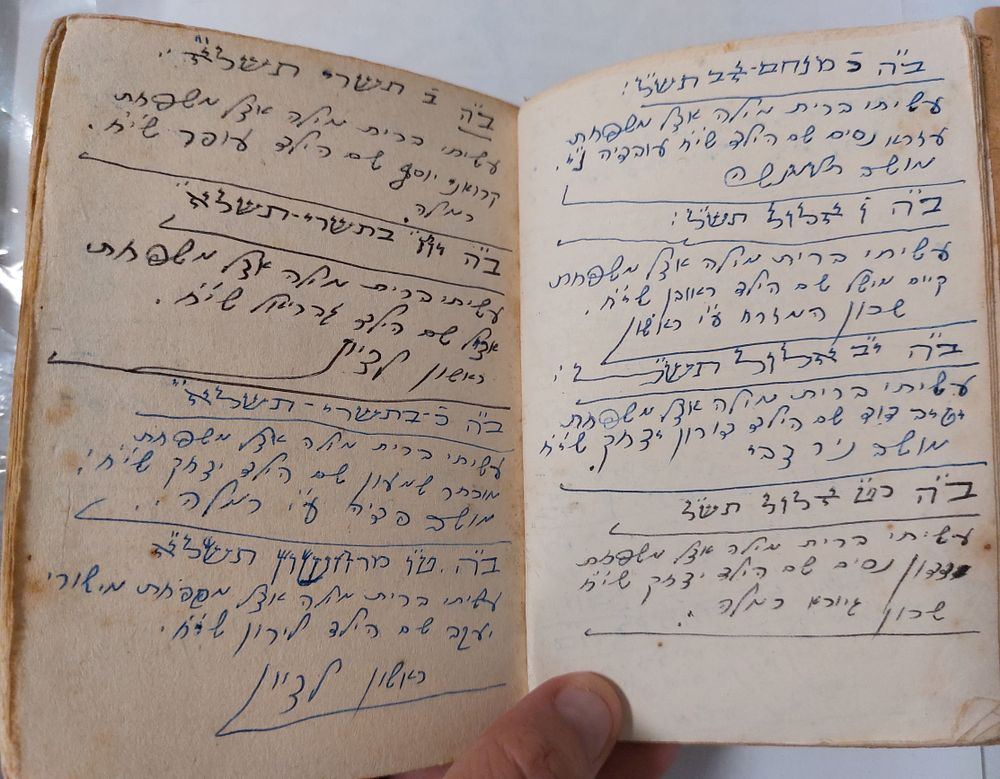 ב"ה כ מנחם-אב תש"ל:
עשיתי ברית מילה אצל משפחת
עזרא נסים שם הילד שי'ח עובדיה נ"י.
מושב
ב"ה ו אלול תש"ל:
עשיתי ברית מילה אצל משפחת
קיים מישל שם הילד ראובן שי'ח.
שכון המזרח ע"י ראשון
ב"ה י"ב אלול תש"ל
עשיתי ברית מילה אצל משפחת
דוד שם הילד דורון יצחק שי'ח
מושב ניר צבי
ב"ה כ"ט אלול תש"ל
עשיתי ברית מילה אצל משפחת
דדון נסים שם הילד יצחק שי'ח
שכון גיורא רמלה.
ב"ה ב תשרי תשל"א
עשיתי ברית מילה אצל משפחת
קרואני יוסף שם הילד עופר שי'ח.
רמלה.
ב"ה בתשרי-תשל"א
עשיתי ברית מילה אצל משפחת
שם הילד גבריאל שי'ח.
ראשון לציון
ב"ה כ-בתשרי-תשל"א
עשיתי ברית מילה אצל משפחת
שמעון שם הילד יצחק שי'ח.
מושב פדיה ע"י רמלה.
ב"ה ט"ו מרחשון תשל"א
עשיתי ברית מילה אצל משפחת מישורי
יעקב שם הילד לירון שי'ח.
ראשון לציון